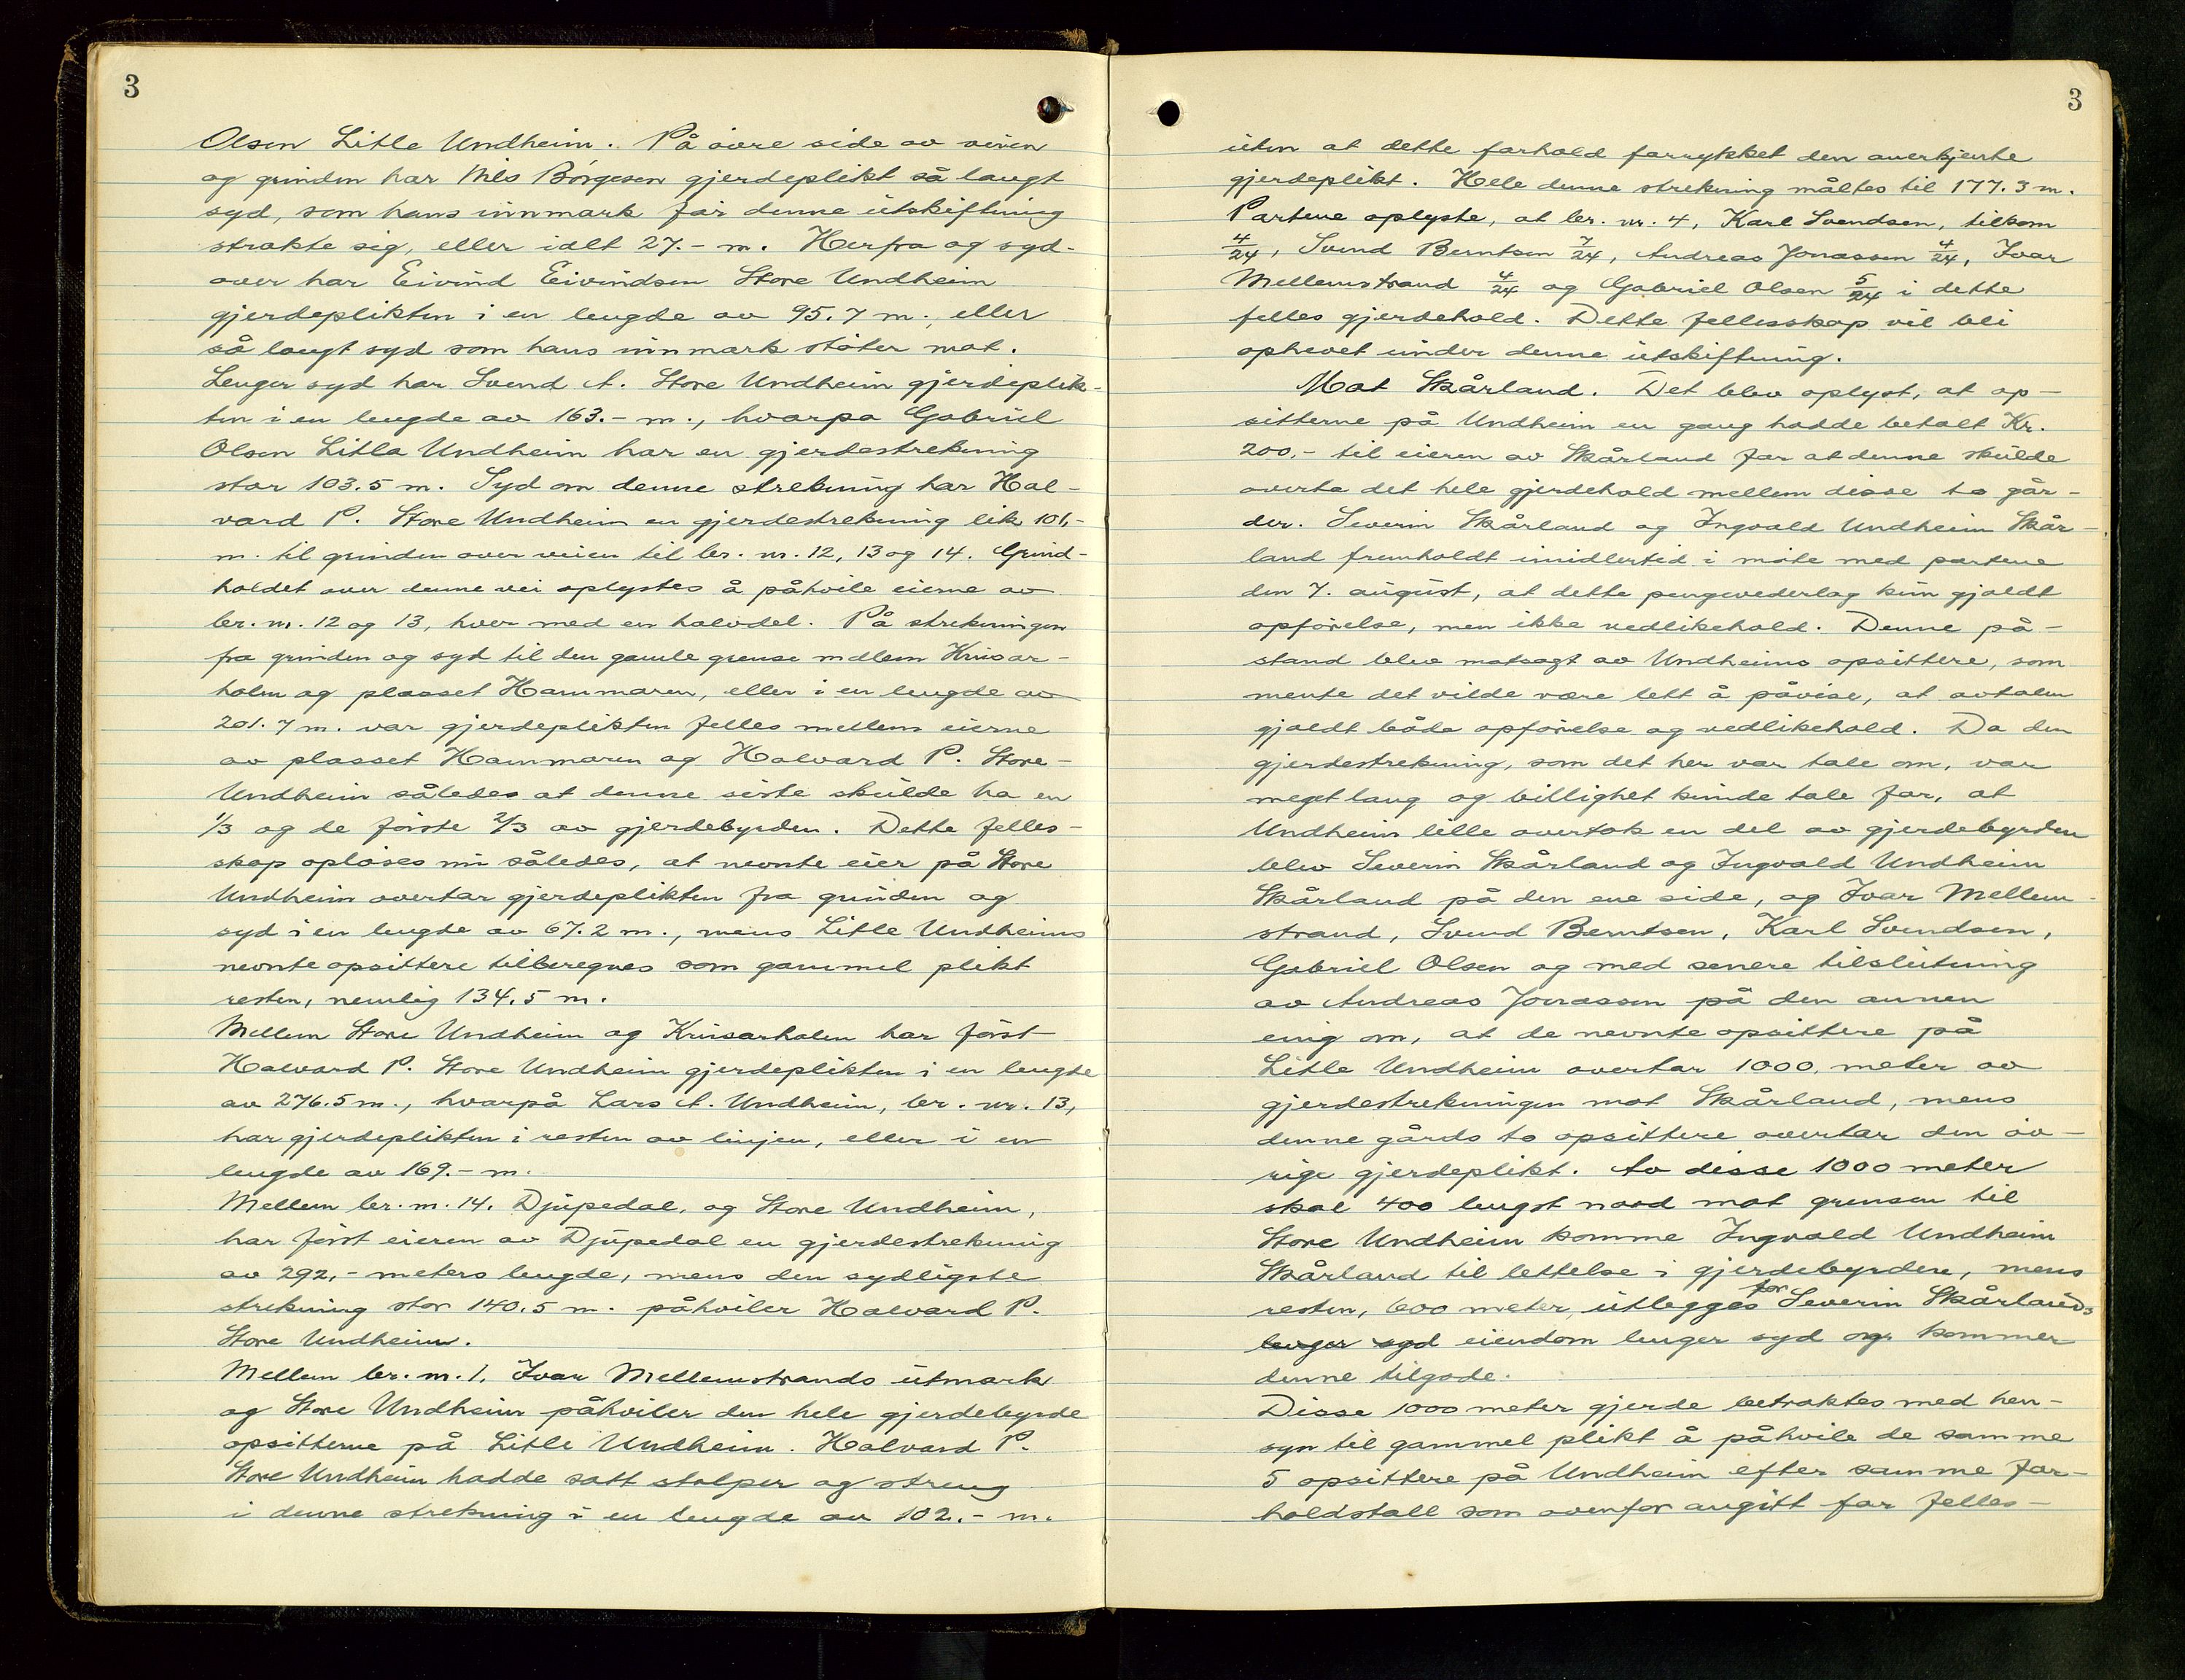 3
Olsen Litle Undheim. På övre side av veien
og grinden har Nils Börgesen gjerdeplikt så langt
syd, som hans innmark för denne utskiftning
strakte sig, eller ialt 27.- m. Herfra og syd-
over har Eivind Eivindsen Store Undheim
gjerdeplikten i en lengde av 95.7 m., eller
så langt syd som hans innmark stöter mot.
Lenger syd har Svend A. Store Undheim gjerdeplik-
ten i en lengde av 163.- m., hvorpå Gabriel
Olsen Litla Undheim har en gjerdestrekning
stor 103.5 m. Syd om denne strekning har Hal-
vard P. Store Undheim en gjerdestrekning lik 101,-
m. til grinden over veien til br. nr. 12, 13 og 14. Grind-
holdet over denne vei oplystes å påhvile eierne av
br. nr. 12 og 13, hver med en halvdel. På strekningen
fra grinden og syd til den gamle grense mellem Krusar-
holen og plasset Hammaren, eller i en lengde av
201.7 m. var gjerdeplikten felles mellem eierne
av plasset Hammaren og Halvard P. Store-
Undheim således at denne siste skulde ha en
1/3 og de förste 2/3 av gjerdebyrden. Dette felles-
skap oplöses nu således, at nevnte eier på Store
Undheim overtar gjerdeplikten fra grinden og
syd i en lengde av 67.2 m., mens Litle Undheims
nevnte opsittere tilberegnes som gammel plikt
resten, nemlig 134.5 m.
Mellem Store Undheim og Krusarholen har först
Halvard P. Store Undheim gjerdeplikten i en lengde
av 276.5 m., hvorpå Lars A. Undheim, br. nr. 13,
har gjerdeplikten i resten av linjen, eller i en
lengde av 169.- m.
Mellem br. nr. 14. Djupedal, og Store Undheim,
har först eieren av Djupedal en gjerdestrekning
av 292,- meters lengde, mens den sydligste
strekning stor 140.5 m. påhviler Halvard P.
Store Undheim.
Mellem br. nr. 1. Ivar Mellemstrands utmark
og Store Undheim påhviler den hele gjerdebyrde
opsitterne på Litle Undheim. Halvard P.
Store Undheim hadde satt stolper og streng
i denne strekning i en lengde av 102.- m.
3
uten at dette forhold forrykket den anerkjente
gjerdeplikt. Hele denne strekning måltes til 177.3 m.
Partene oplyste, at br. nr. 4, Karl Svendsen, tilkom
4/24, Svend Berntsen 7/24, Andreas Jonassen 4/24, Ivar
Mellemstrand 4/24 og Gabriel Olsen 5/24 i dette
felles gjerdehold. Dette fellesskap vil bli
ophevet under denne utskiftning.
Mot Skårland. Det blev oplyst, at op-
sitterne på Undheim en gang hadde betalt Kr.
200.- til eieren av Skårland for at denne skulde
overta det hele gjerdehold mellem disse to går-
der. Severin Skårland og Ingvald Undheim Skår-
land fremholdt imidlertid i möte med partene
den 7. august, at dette pengevederlag kun gjaldt
opförelse, men ikke vedlikehold. Denne på-
stand blev motsagt av Undheims opsittere, som
mente det vilde være lett å påvise, at avtalen
gjaldt både opförelse og vedlikehold. Da den
gjerdestrekning, som det her var tale om, var
meget lang og billighet kunde tale for, at
Undheim lille overtok en del av gjerdebyrden
blev Severin Skårland og Ingvald Undheim
Skårland på den ene side, og Ivar Mellem-
strand, Svend Berntsen, Karl Svendsen,
Gabriel Olsen og med senere tilslutning
av Andreas Jonassen på den annen
enig om, at de nevnte opsittere på
Litle Undheim overtar 1000, meter av
gjerdestrekningen mot Skårland, mens
denne gårds to opsittere overtar den öv-
rige gjerdeplikt. Av disse 1000 meter
skal 400 lengst nord mot grensen til
Store Undheim komme Ingvald Undheim
Skårland til lettelse i gjerdebyrden, mens
resten, 600 meter, utlegges for Severin Skårlands
lenger syd eiendom lenger syd og kommer
denne tilgode.
Disse 1000 meter gjerde betraktes med hen-
syn til gammel plikt å påhvile de samme
5 opsittere på Undheim efter samme for-
holdstall som ovenfor angitt for felles-